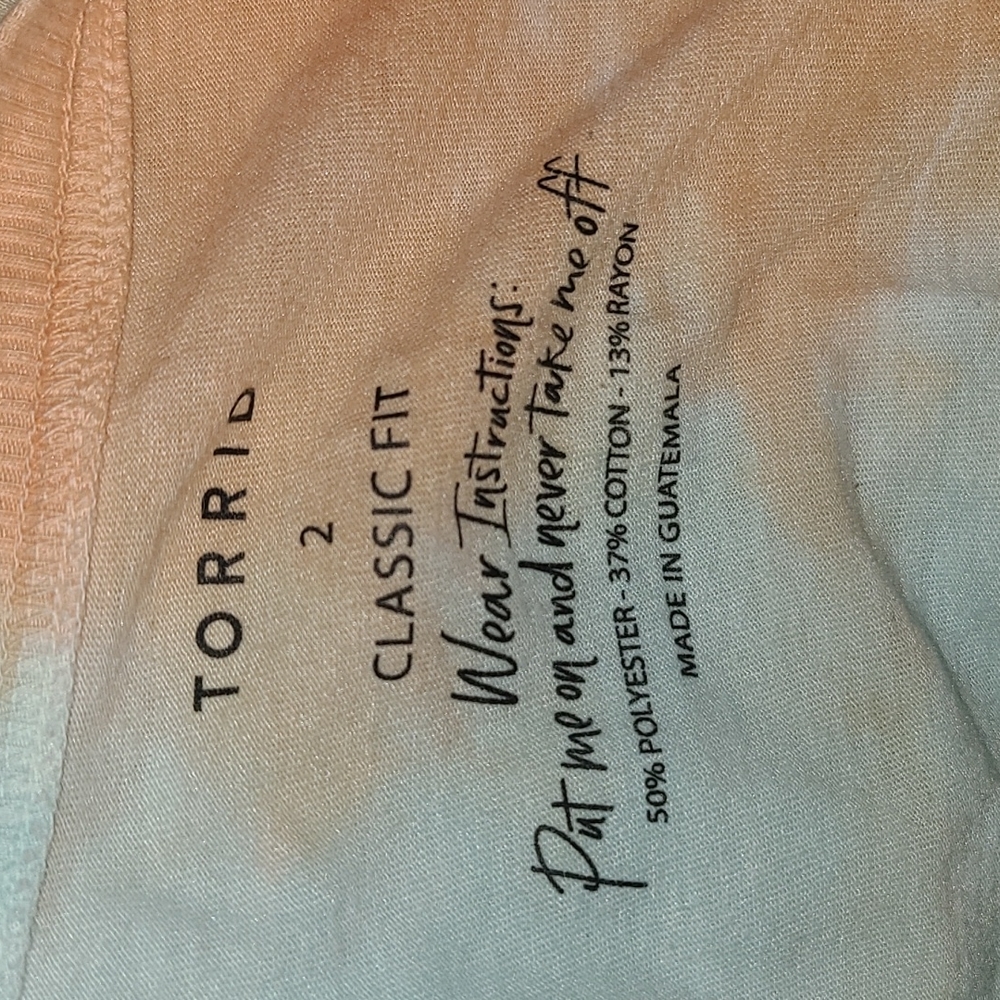 TORRID
2
CLASSIC FIT
Wear Instructions:
Put me on and never take me off
50% POLYESTER - 37% COTTON - 13% RAYON
MADE IN GUATEMALA